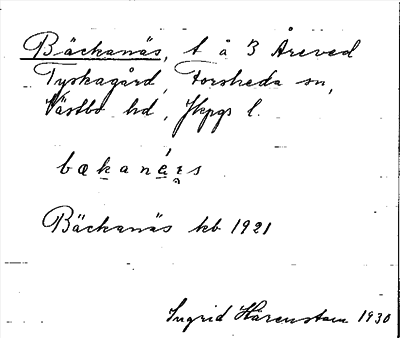 Bäckanäs, t å 3 Åreved
Tyskagård, Forsheda sn,
Västbo hd, Jkpgs l.
Bäckanäs kb 1921
Ingrid Hårenstam 1930